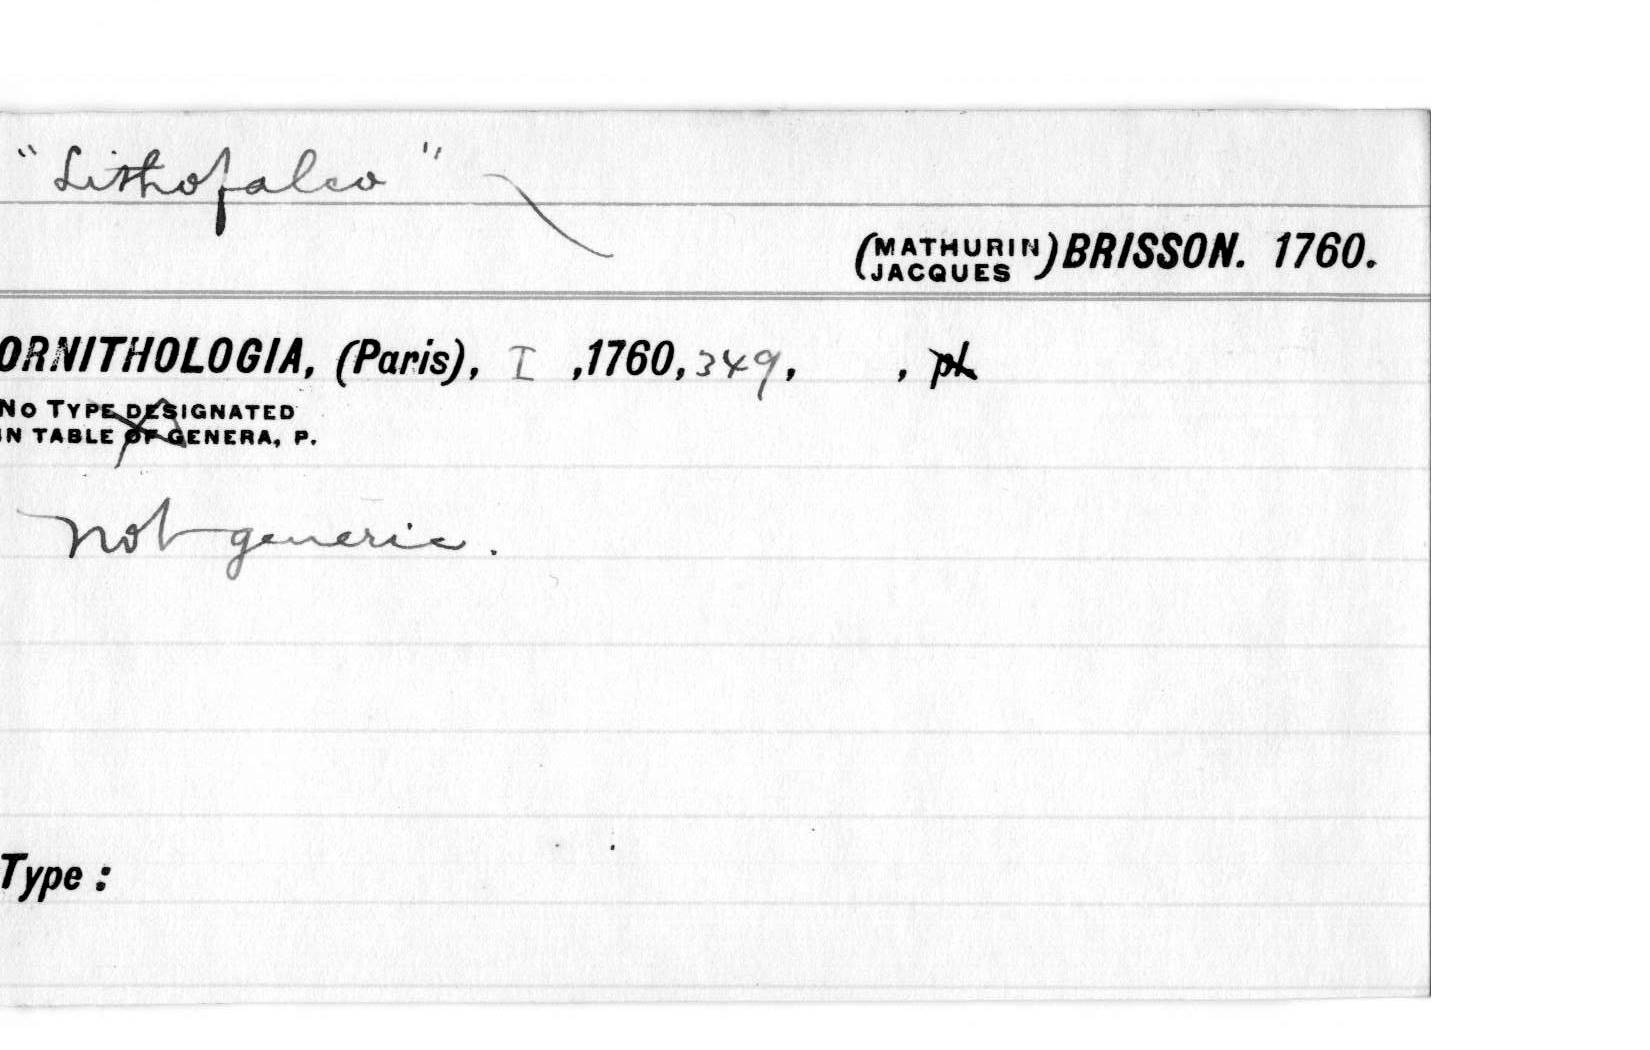 "Lithofalco"
(MATHURIN JACQUES) BRISSON. 1760.
ORNITHOLOGIA, (Paris), I ,1760, 349, , pl
NO TYPE DESIGNATED
IN TABLE OF GENERA, P.
Not generic.
Type :